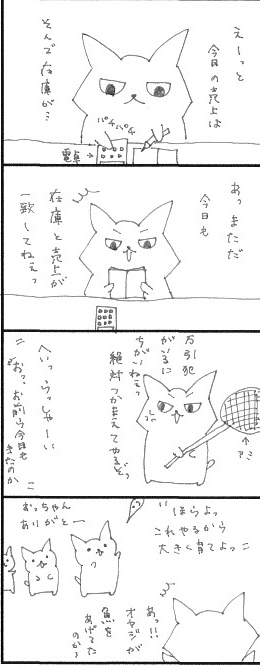 えーっと
今日の売上は
そんで在庫が…
パチパチ
電卓→
あっまただ
今日も
在庫と売上が
一致してねぇっ
万引犯
がいるに
ちがいねぇっ
絶対つかまえてやるぞっ
←アミ
へいっらっしゃーい
おっ、お前ら今日も
きたのか
ほらよっ
これやるから
大きく育てよっ
おっちゃん
ありがとー
あっ!!
オヤジが
魚を
あげてた
のか